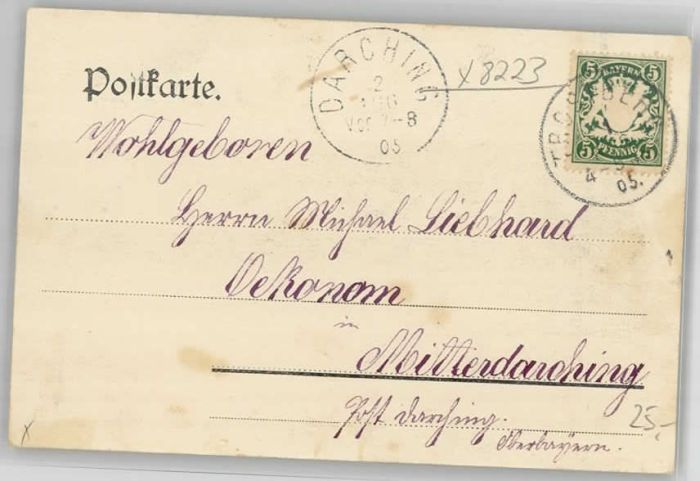 Postkarte.
DARCHING
2
AUG
Vor 7-8
05
x 8223
5 BAYERN 5
5 PFENNIG 5
4
05.
Wohlgeboren
Herrn Michael Liebhard
Oekonom
in
Mitterdarching
Post Darching.
Oberbayern.
25,-
x